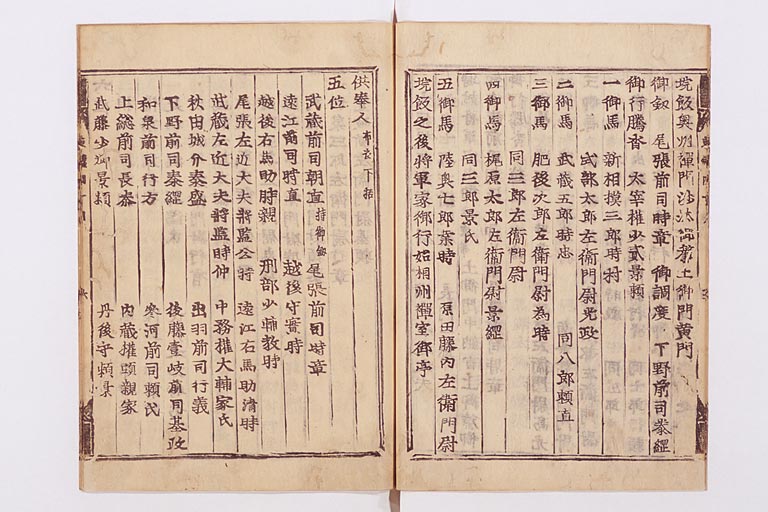 垸飯奥州禅門沙汰 御簾土御門黄門
御釼 尾張前司時章 御調度 下野前司泰經
御行騰沓 太宰權少貳景頼
一御馬 新相摸三郎時村
式部太郎左衛門尉光政
二御馬 武藏五郎時忠 同八郎頼直
三御馬 肥後次郎左衛門尉為時
同三郎左衛門尉
四御馬 梶原太郎左衛門尉景綱
同三郎景氏
五御馬 陸奥七郎業時 原田藤内左衛門尉
垸飯之後將軍家御行始相州禪室御亭
供奉人 布衣下括
五位
武藏前司朝直 持御釼 尾張前司時章
遠江前司時直 越後守實時
越後右馬助時親 刑部少輔教時
尾張左近大夫將監公時 遠江右馬助清時
武藏左近大夫將監時仲 中務權大輔家氏
秋田城介泰盛 出羽前司行義
下野前司泰經 後藤壹岐前司基政
和泉前司行方 參河前司頼氏
上総前司長泰 内藏權頭親家
武藤少卿景頼 丹後守頼景